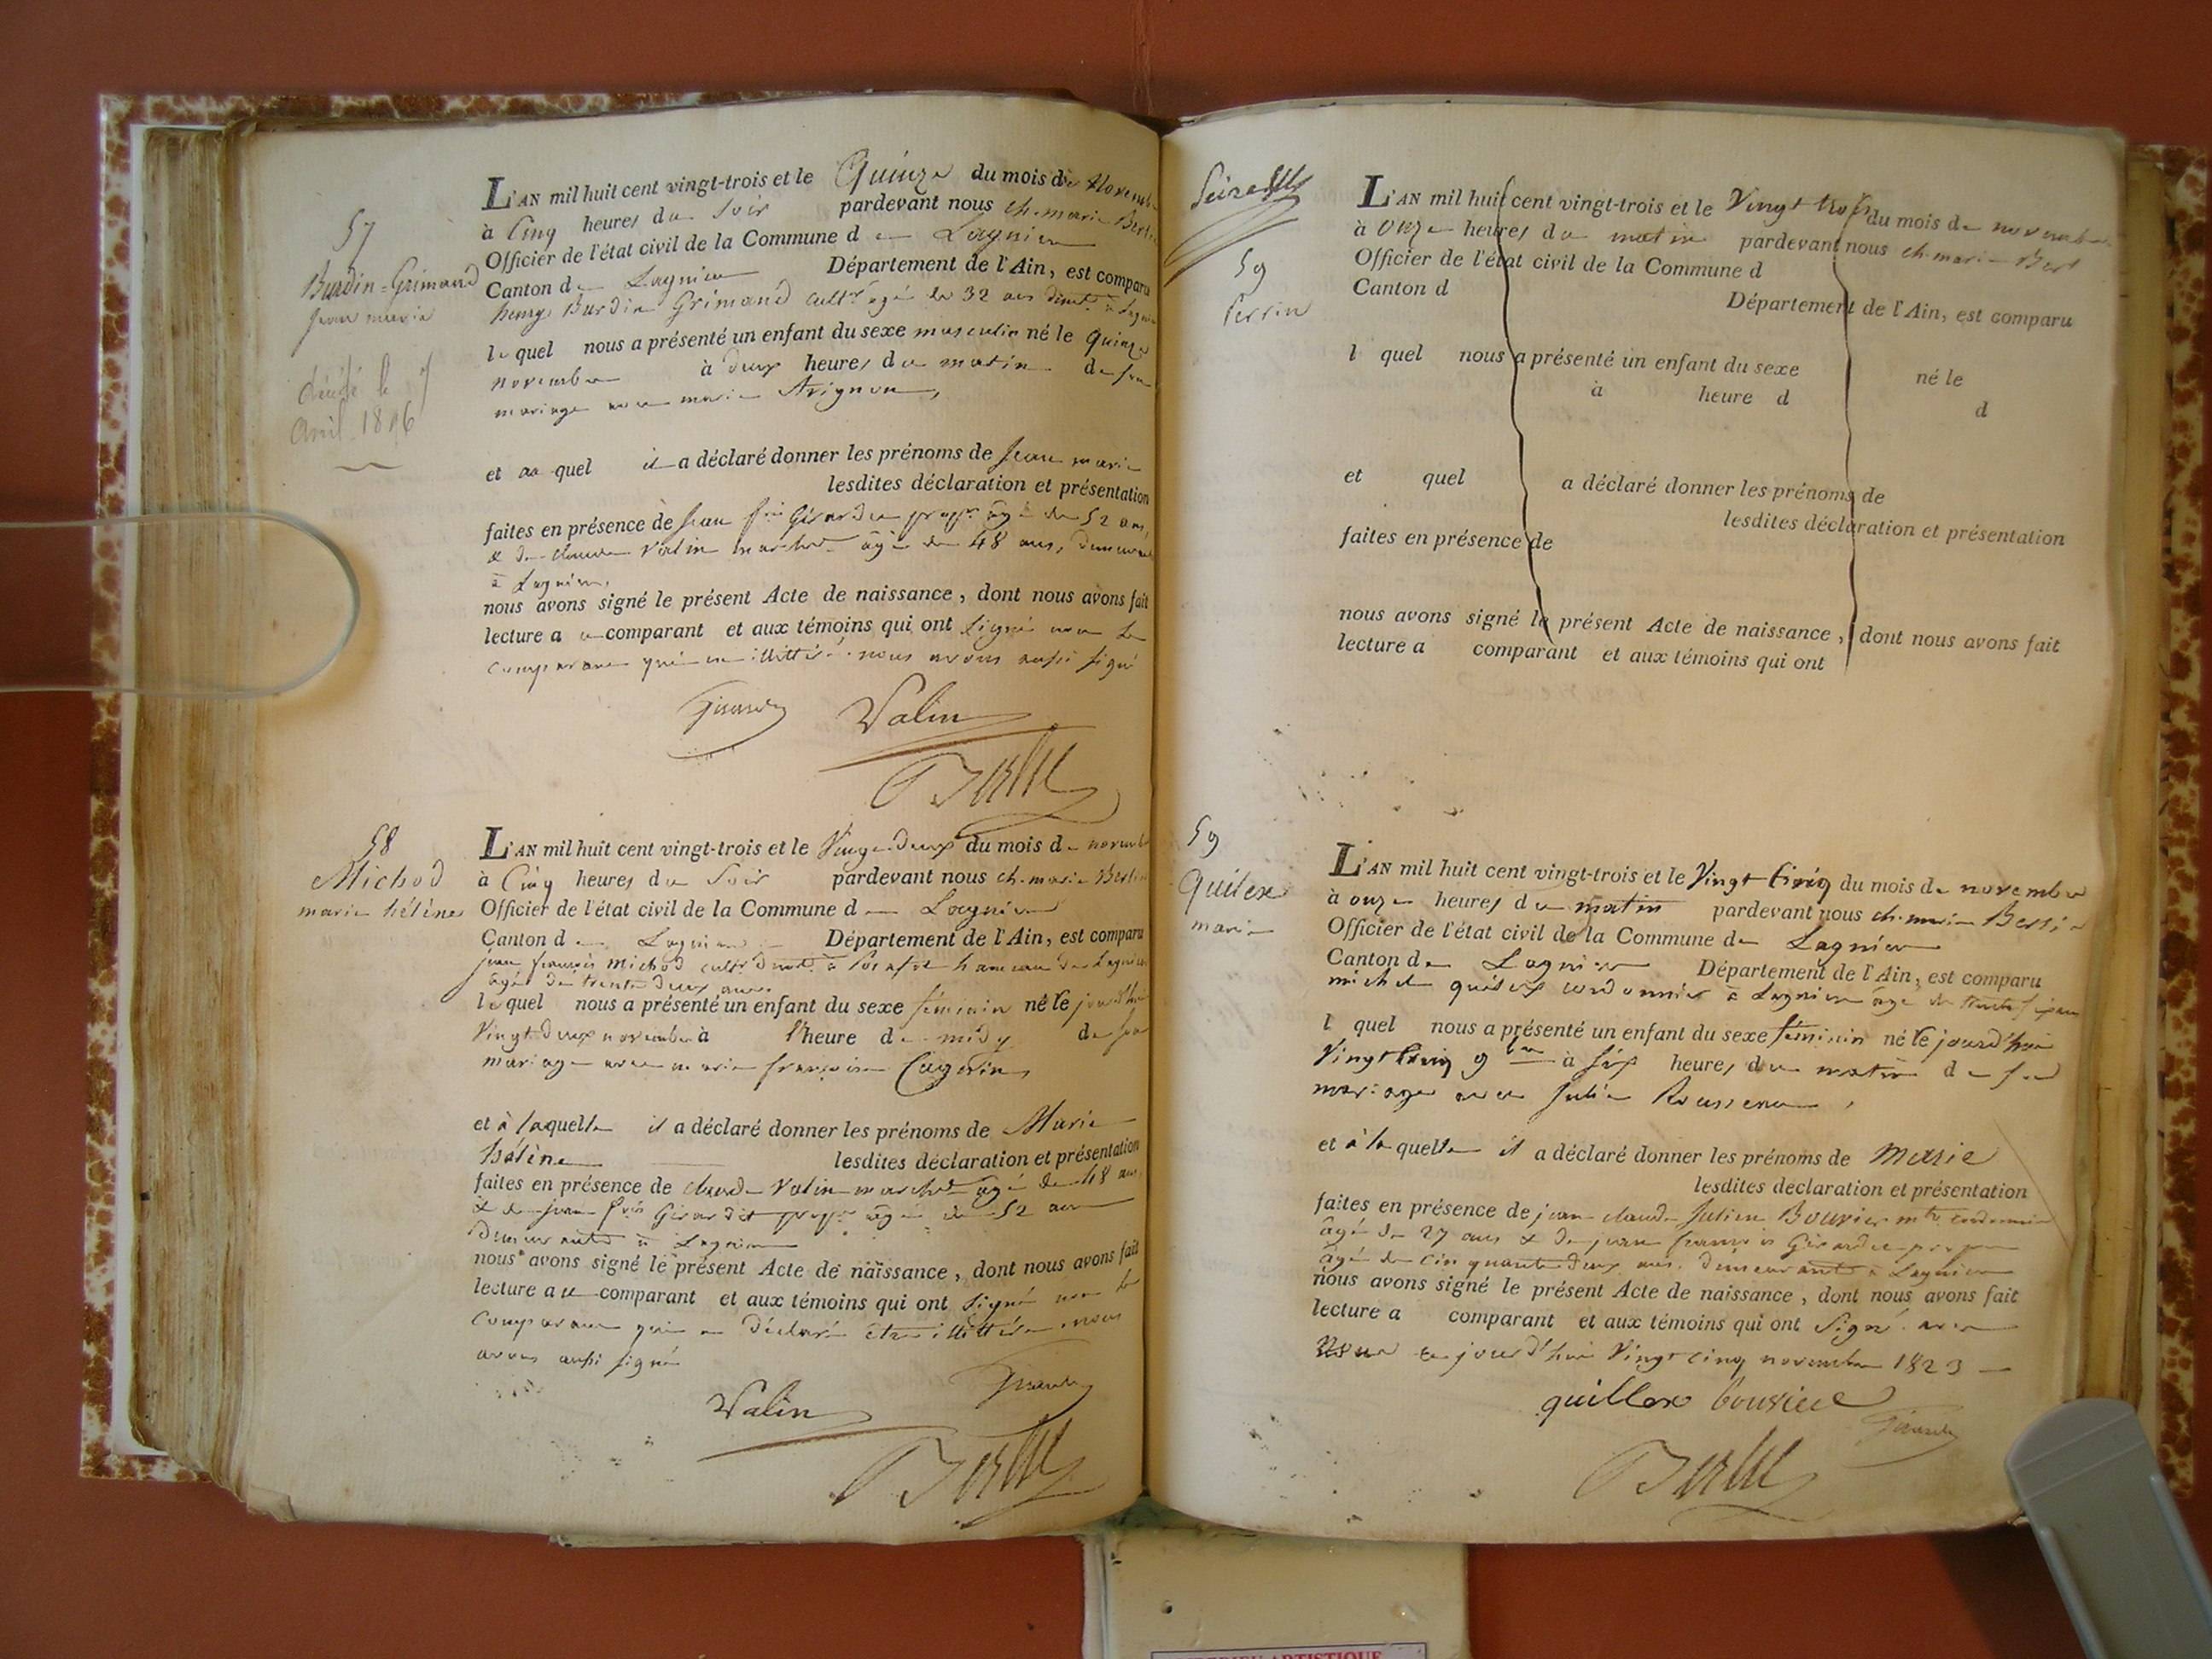 57
Burdin=Grimand
jean marie
décédé le
avril
L'AN mil huit cent vingt-trois et le Quinze du mois de Novembre
à Cinq heures du Soir pardevant nous ch. marie
Officier de l'état civil de la Commune de Lagnieu
Canton de Lagnieu Département de l'Ain, est comparu
henry Burdin Grimand cultr âgé de 32 ans demt à Lagnieu
lequel nous a présenté un enfant du sexe masculin né le Quinze
novembre à deux heures du matin de son
mariage avec marie Avignon,
et au quel il a déclaré donner les prénoms de Jean marie
lesdites déclaration et présentation
faites en présence de Jean propre âgé de 52 ans,
& de claude Valin marchd âgé de 48 ans, demeurant
à Lagnieu,
nous avons signé le présent Acte de naissance, dont nous avons fait
lecture au comparant et aux témoins qui ont signé non le
comparant illittéré. nous avons aussi signé
Valin
58
Michod
marie hélène
L'AN mil huit cent vingt-trois et le Vingt deux du mois de novembre
à Cinq heures du Soir pardevant nous ch. marie
Officier de l'état civil de la Commune de Lagnieu
Canton de Lagnieu Département de l'Ain, est comparu
jean françois Michod cultr demt à hameau de Lagnieu
âgé de trente deux ans.
lequel nous a présenté un enfant du sexe féminin né le jourd'hui
Vingt deux novembre à l'heure de midy de son
mariage avec marie françoise
et à laquelle il a déclaré donner les prénoms de Marie
hélène lesdites déclaration et présentation
faites en présence de claude Valin marchd âgé de 48 ans
& de jean frçois Girardit propre âgé de 52 ans
Demeurants à Lagnieu
nous avons signé le présent Acte de naissance, dont nous avons fait
lecture au comparant et aux témoins qui ont signé non le
comparant qui a déclaré être illittéré. nous
avons aussi signé
Valin
59
Perrin
L'AN mil huit cent vingt-trois et le Vingt trois du mois de novembre
à onze heures du matin pardevant nous ch. marie
Officier de l'état civil de la Commune d
Canton d
Département de l'Ain, est comparu
l quel nous a présenté un enfant du sexe né le
à heure d d
et quel a déclaré donner les prénoms de
lesdites déclaration et présentation
faites en présence de
nous avons signé le présent Acte de naissance, dont nous avons fait
lecture a comparant et aux témoins qui ont
59
Quilex
marie
L'AN mil huit cent vingt-trois et le Vingt Cinq du mois de novembre
à onze heures du matin pardevant nous ch. marie
Officier de l'état civil de la Commune de Lagnieu
Canton de Lagnieu Département de l'Ain, est comparu
michel quilex cordonnier à Lagnieu âgé de trente
l quel nous a présenté un enfant du sexe féminin né le jourd'hui
Vingt Cinq 9bre à six heures du matin de son
mariage avec Julie Rousseau,
et à la quelle il a déclaré donner les prénoms de Marie
lesdites declaration et présentation
faites en présence de jean claude Julien Bouvier mtre cordonnier
âgé de 27 ans & de jean françois
âgé de cinquante deux ans. demeurants à Lagnieu
nous avons signé le présent Acte de naissance, dont nous avons fait
lecture a comparant et aux témoins qui ont signé avec
nous ce jourd'hui Vingt cinq novembre 1823
quillex bouvier